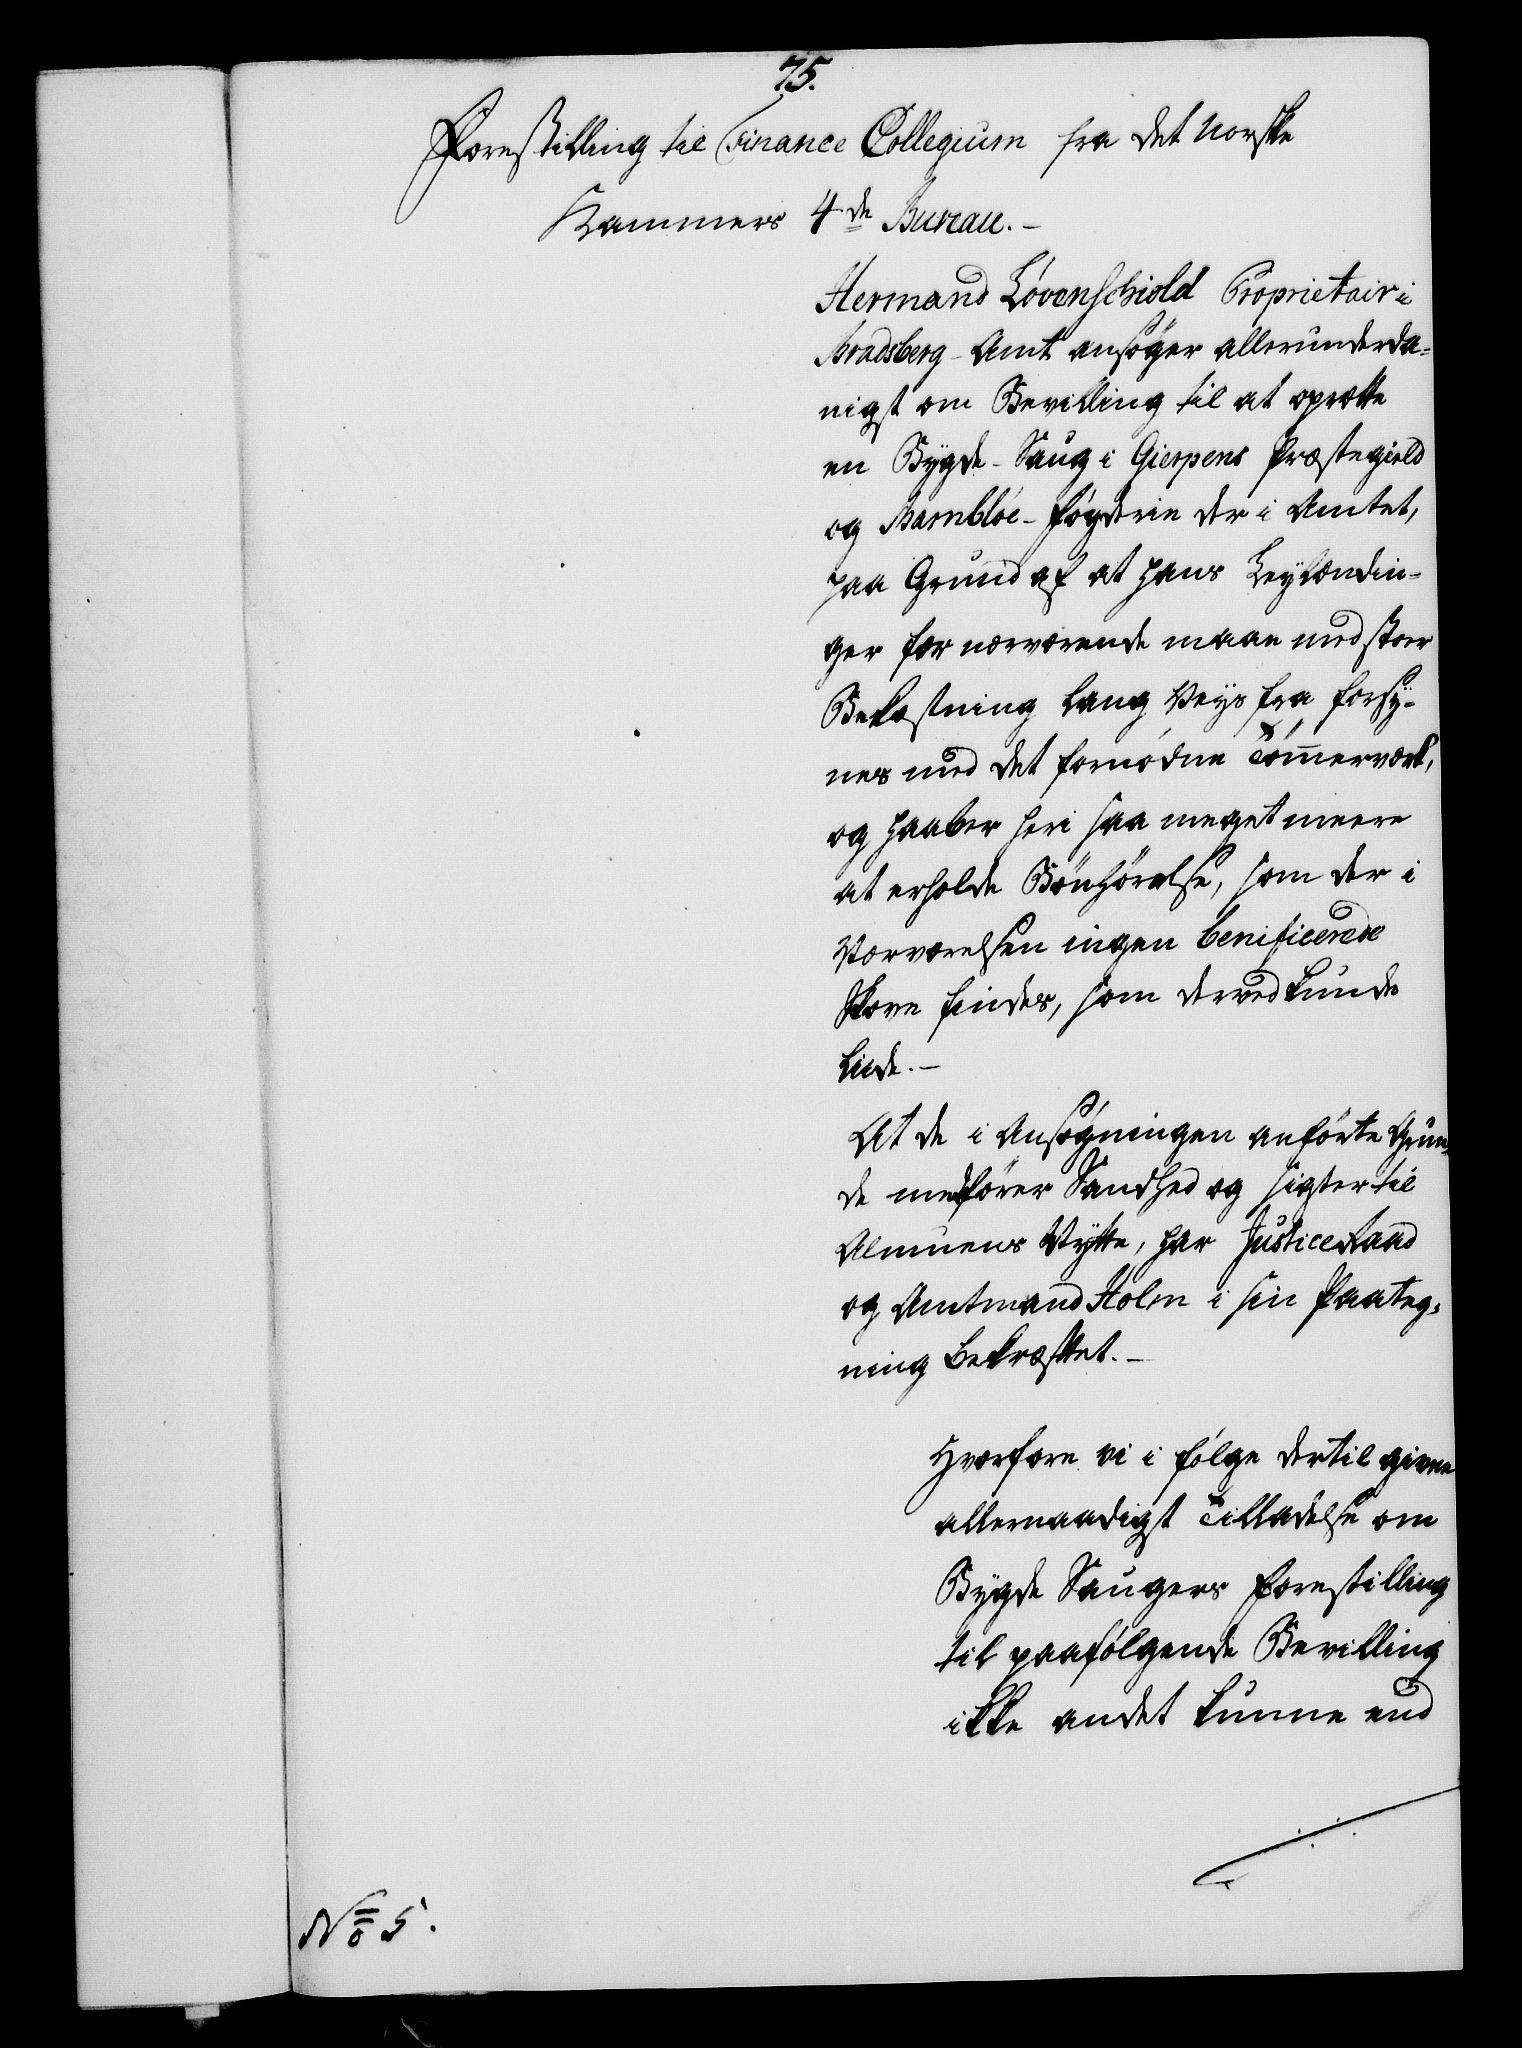 75.
Forestilling til Finance Collegium fra det Norske
Kammers 4de Bureau. –
Hermand Lóvenschiold Proprietair i
Bradsberg-Amt ansøger allerunderda-
nigst om Bevilling til at oprette
en Bygde-Saug i Gierpens Præstegield
og Bambløe-Fogderie der i Amtet,
paa Grund af at hans Leylændin-
ger for nærværende maae med stoer
Bekostning lang Veys fra forsy-
nes med det fornødne Tømmerværk,
og haaber heri saa meget meere
at erholde Bønhørelse, som der i
Nærværelsen ingen benificerede
Skove findes, som derved kunde
liide. –
At de i Ansøgningen anførte Grun-
de medfører Sandhed og sigter til
Almuens Nytte, har Justice Raad
og Amtmand Holm i sin Paateg-
ning bekræftet. –
Hvorfore vi i følge dertil given
allernaadigst Tilladelse om
Bygde Saugers Forestilling
til paafølgende Bevilling
ikke andet kunne end
No 5.